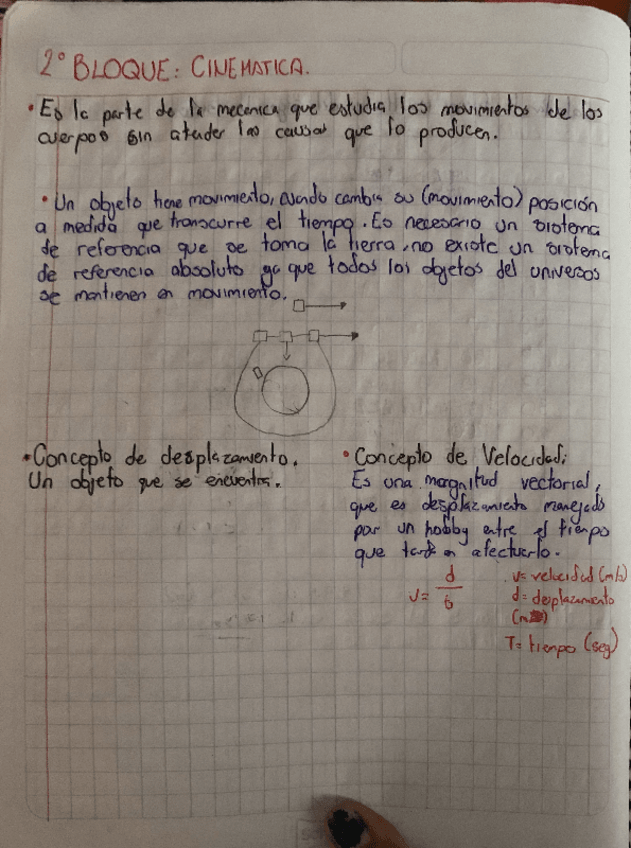 2° BLOQUE: CINEMATICA.
• Es la parte de la mecanica que estudia los movimientos de los
cuerpos sin atender las causas que lo producen.
• Un objeto tiene movimiento, cuando cambia su (movimiento) posición
a medida que transcurre el tiempo. Es necesario un sistema
de referencia que se toma la tierra, no existe un sistema
de referencia absoluto ya que todos los objetos del universos
se mantienen en movimiento.
• Concepto de desplazamiento.
Un objeto que se encuentra.
• Concepto de Velocidad:
Es una margnitud vectorial,
que es desplazamiento manejado
por un hobby entre el tiempo
que tarda en afectuarlo.
v= d/t
v= velocidad (m/s)
d= desplazamiento
(m)
T= tiempo (seg)